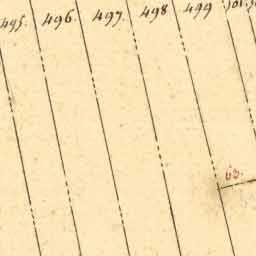 495. 496. 497. 498 499
63.